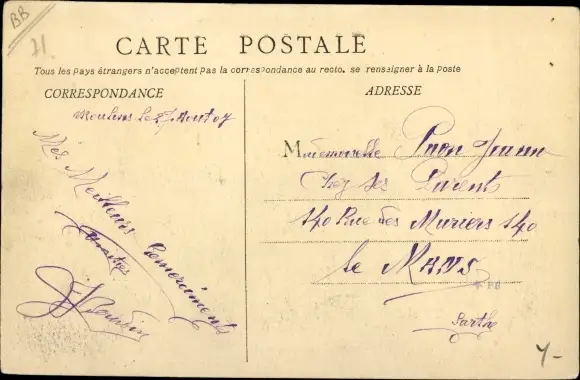 BB
21
CARTE POSTALE
Tous les pays étrangers n'acceptent pas la correspondance au recto. se renseigner à la poste
CORRESPONDANCE
ADRESSE
Moulins le 27 Aout 07
Mes Meilleurs Remerciments
Amities
Mademoiselle Jeanne
Chez Ses Parent
140 Rue des Muriers 140
le MANS
Sarthe